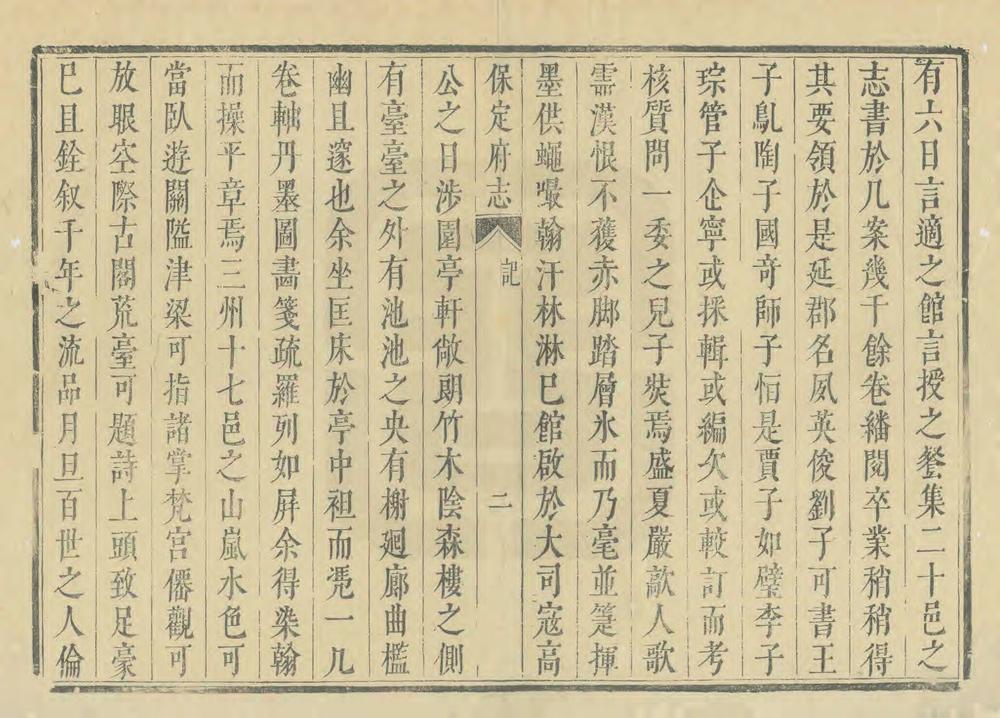 有六日言適之館言授之餐集二十邑之
志書於几案幾千餘卷繙閱卒業稍稍得
其要領於是延郡名夙英俊劉子可書王
子鳧陶子國奇師子怕是賈子如璧李子
琮管子企寧或採輯或編次或較訂而考
核質問一委之兒子奘焉盛夏嚴歊人歌
需漢恨不獲赤脚踏層氷而乃毫並筳揮
墨供蠅嘬翰汗林淋巳館啟於大司寇高
保定府志
記
二
公之日涉園亭軒敞朗竹木陰森樓之側
有臺臺之外有池池之央有榭廻廊曲檻
幽且邃也余坐匡床於亭中袒而凴一几
卷軸丹墨圖畵箋疏羅列如屏余得染翰
而操平章焉三州十七邑之山嵐水色可
當臥遊關隘津梁可指諸掌梵宮僊觀可
放眼空際古閣荒臺可題詩上頭致足豪
巳且銓叙千年之流品月旦百世之人倫